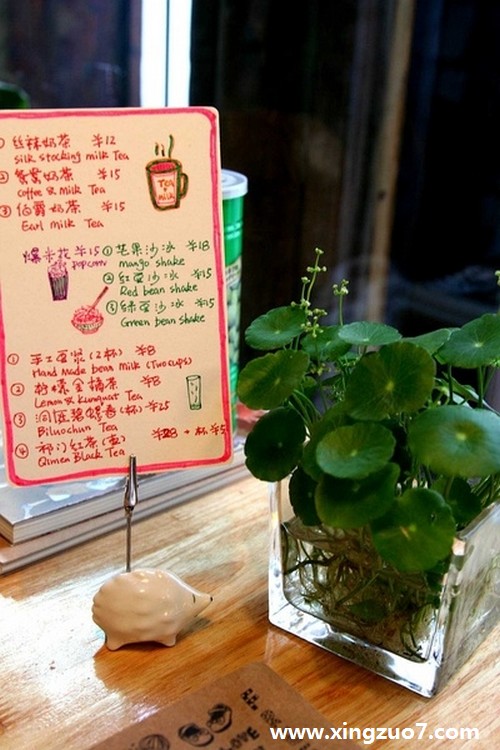 ① 丝袜奶茶 ¥12
silk stocking milk Tea
② 鸳鸯奶茶 ¥15
coffee & milk Tea
③ 伯爵奶茶 ¥15
Earl milk Tea
Tea
milk
爆米花 ¥15
popcorn
① 芒果沙冰 ¥18
mango shake
② 红豆沙冰 ¥15
Red bean shake
③ 绿豆沙冰 ¥15
Green bean shake
① 手工豆浆(2杯) ¥8
Hand Made bean Milk (Two cups)
② 柠檬金桔茶 ¥8
Lemon & Kumquat Tea
③ 洞庭碧螺春(杯) ¥25
Biluochun Tea
④ 祁门红茶(壶) ¥28
Qimen Black Tea
www.xingzuo7.com